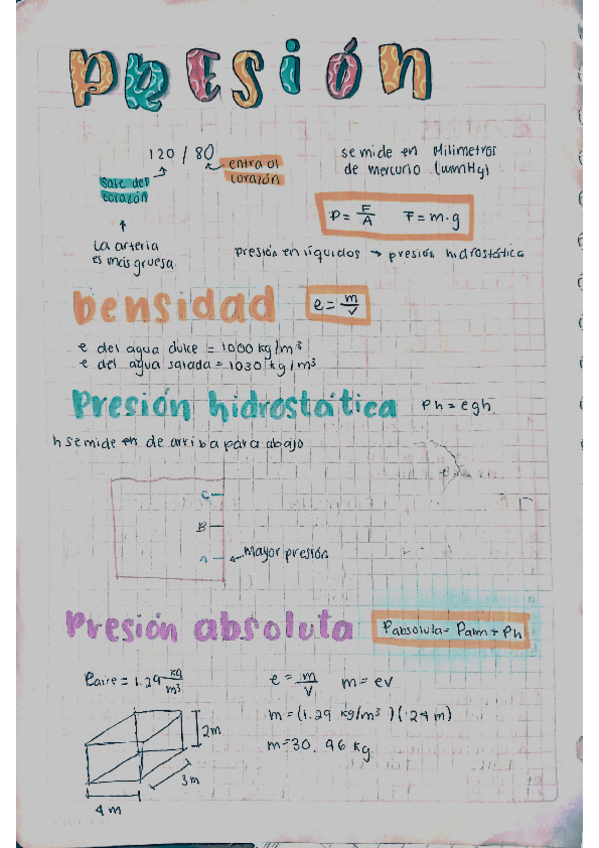 PRESIÓN
120 / 80
sale del corazón
entra al corazón
La arteria es más gruesa.
se mide en Milimetros de mercurio (mmHg)
P = F/A    F = m·g
presión en líquidos → presión hidrostática
Densidad
e = m/v
e del agua dulce = 1000 kg/m³
e del agua salada = 1030 kg/m³
Presión hidrostática
Ph = egh
h se mide en de arriba para abajo
C
B
A
← Mayor presión
Presión absoluta
Pabsoluta = Patm + Ph
eaire = 1.29 kg/m³
e = m/v    m = ev
m = (1.29 kg/m³)(24 m)
m = 30.96 kg.
2m
3m
4 m